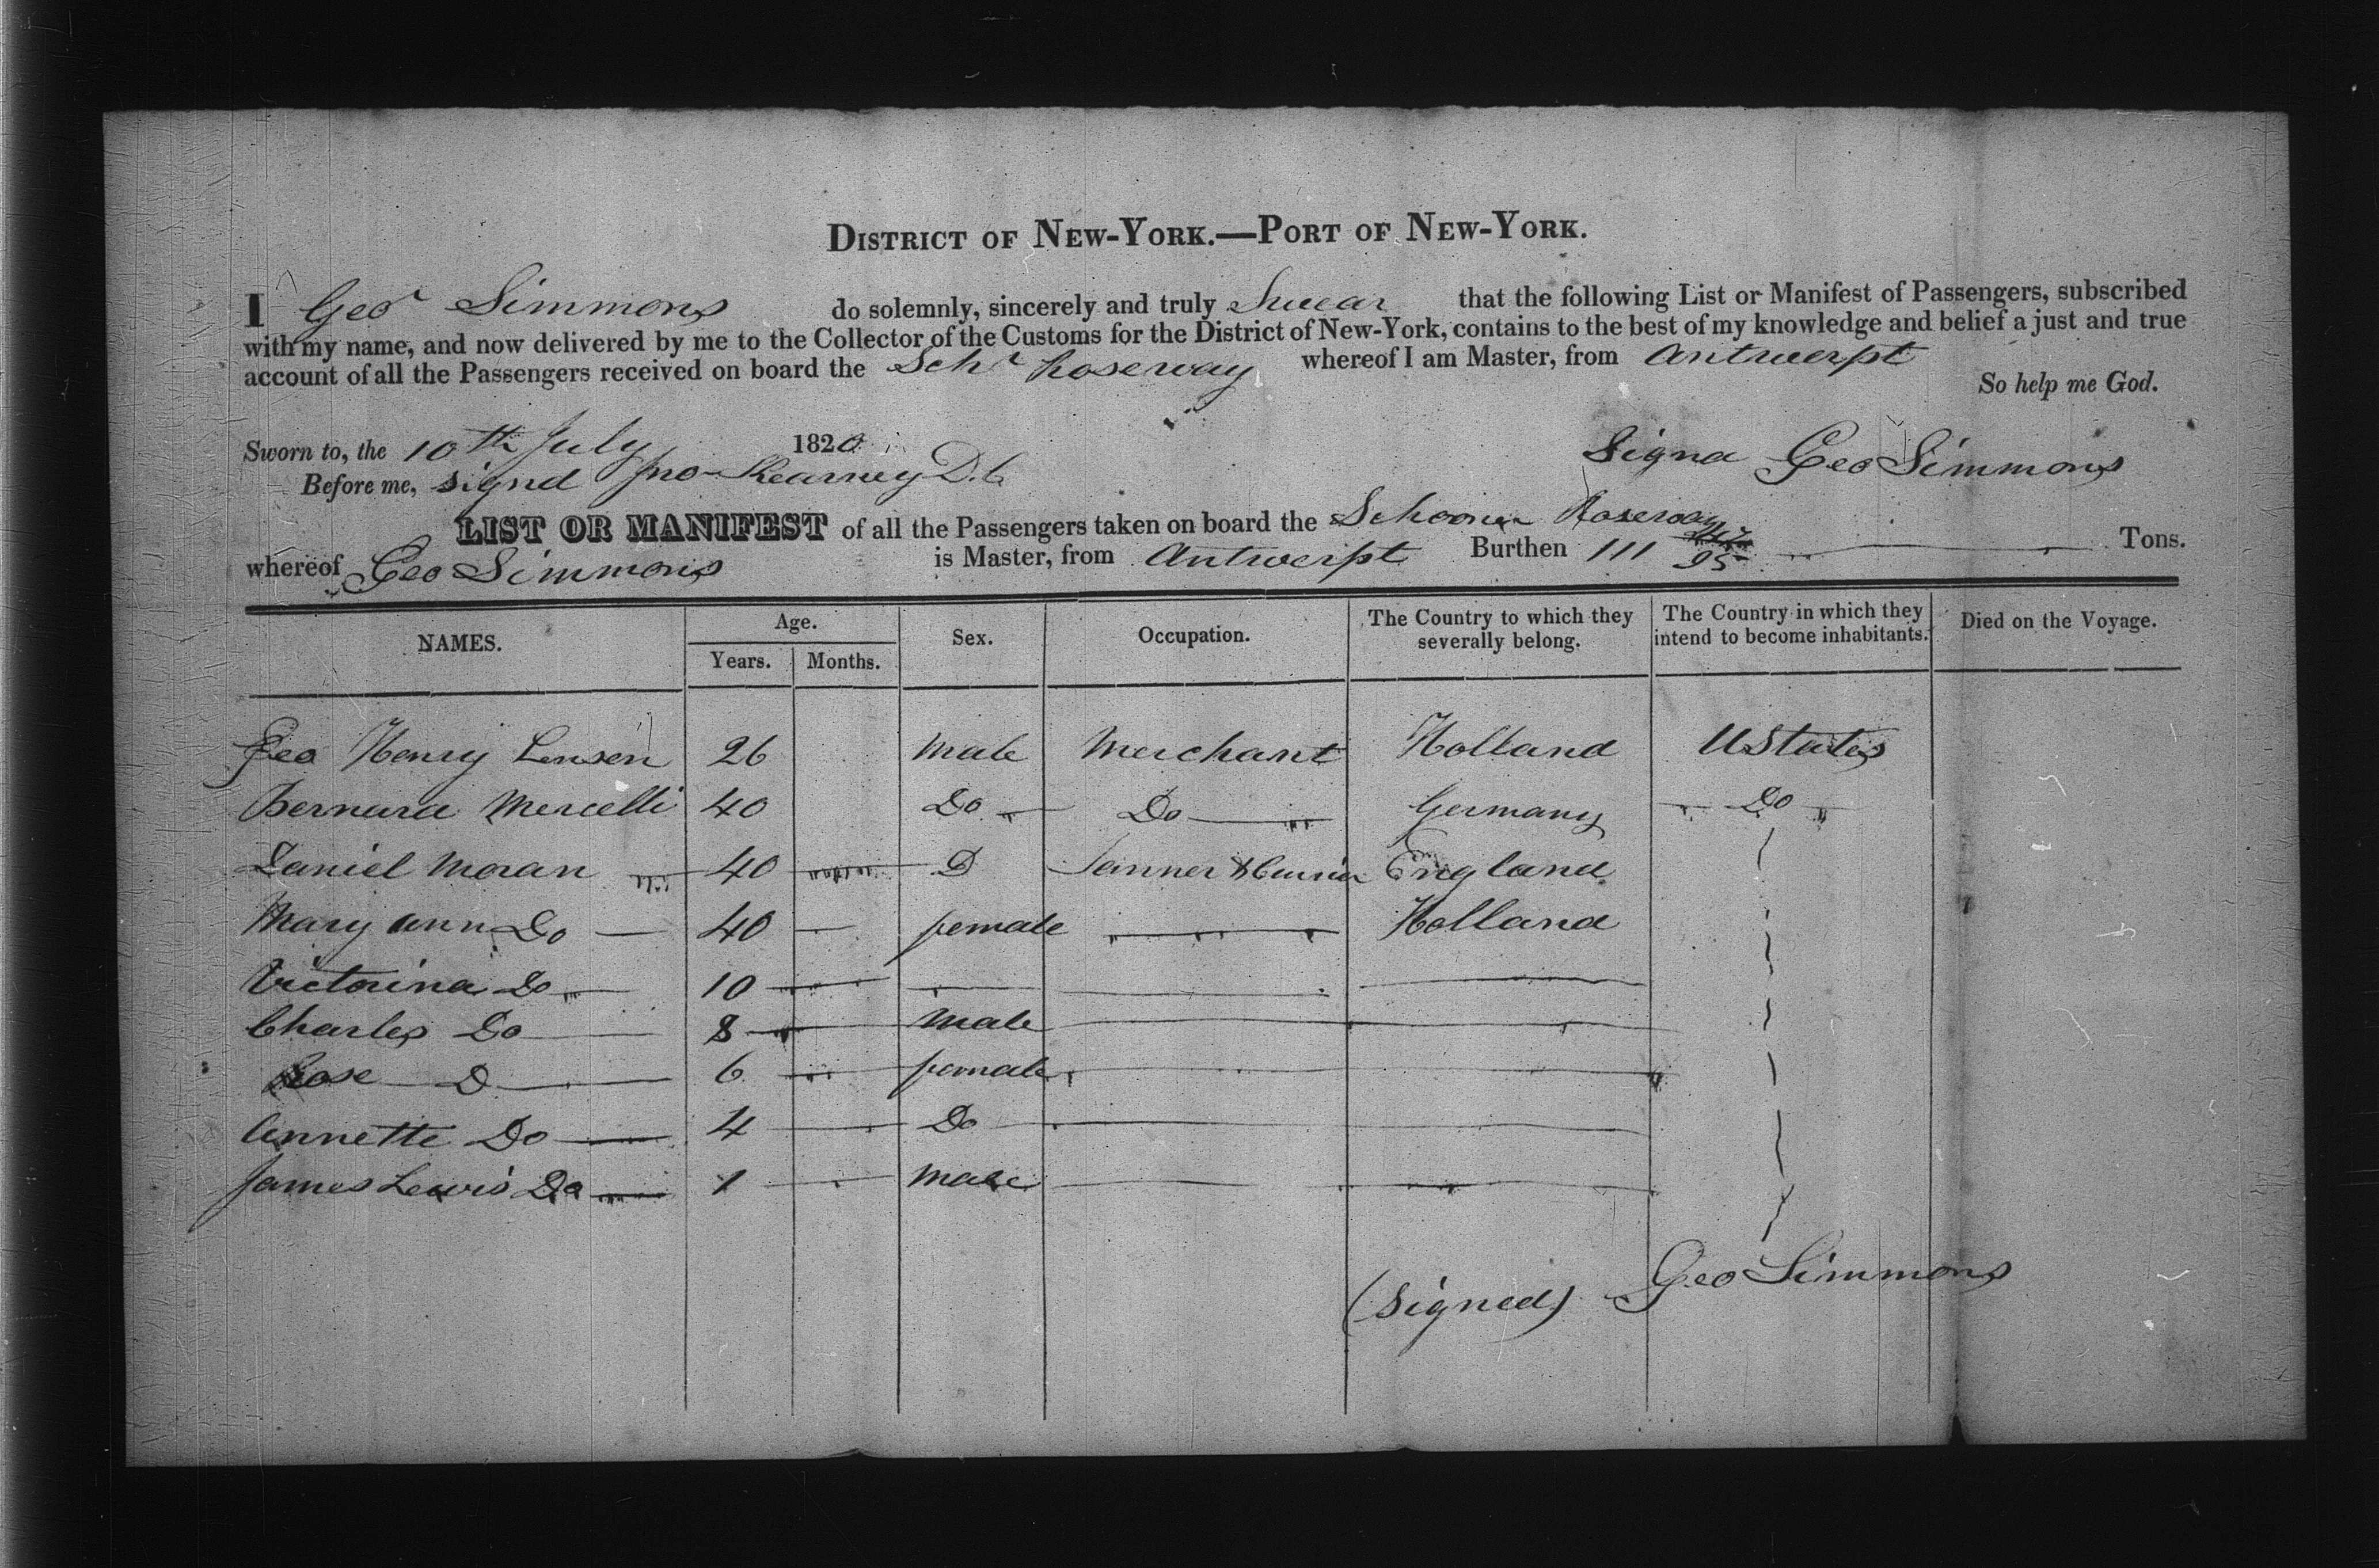 DISTRICT OF NEW-YORK.—PORT OF NEW-YORK.
I Geor Simmons do solemnly, sincerely and truly Swear that the following List or Manifest of Passengers, subscribed
with my name, and now delivered by me to the Collector of the Customs for the District of New-York, contains to the best of my knowledge and belief a just and true
account of all the Passengers received on board the Schr Roseway whereof I am Master, from Antwerpt
So help me God.
Sworn to, the 10th July 1820 Signd Geo Simmons
Before me, signd Jno Kearney D.C
LIST OR MANIFEST of all the Passengers taken on board the Schooner Roseway
whereof Geo Simmons is Master, from Antwerpt Burthen 111 /95 Tons.
NAMES. Age. Years. Months. Sex. Occupation. The Country to which they severally belong. The Country in which they intend to become inhabitants. Died on the Voyage.
Geo Henry Lensen 26 Male Merchant Holland UStates
Bernard Mercelli 40 Do Do Germany Do
Daniel Moran 40 D Tanner & Currier England
Mary Ann Do 40 female Holland
Victorina Do 10
Charles Do 8 Male
Rose D 6 female
Annette Do 4 Do
James Lewis Do 1 Male
(Signed) Geo Simmons